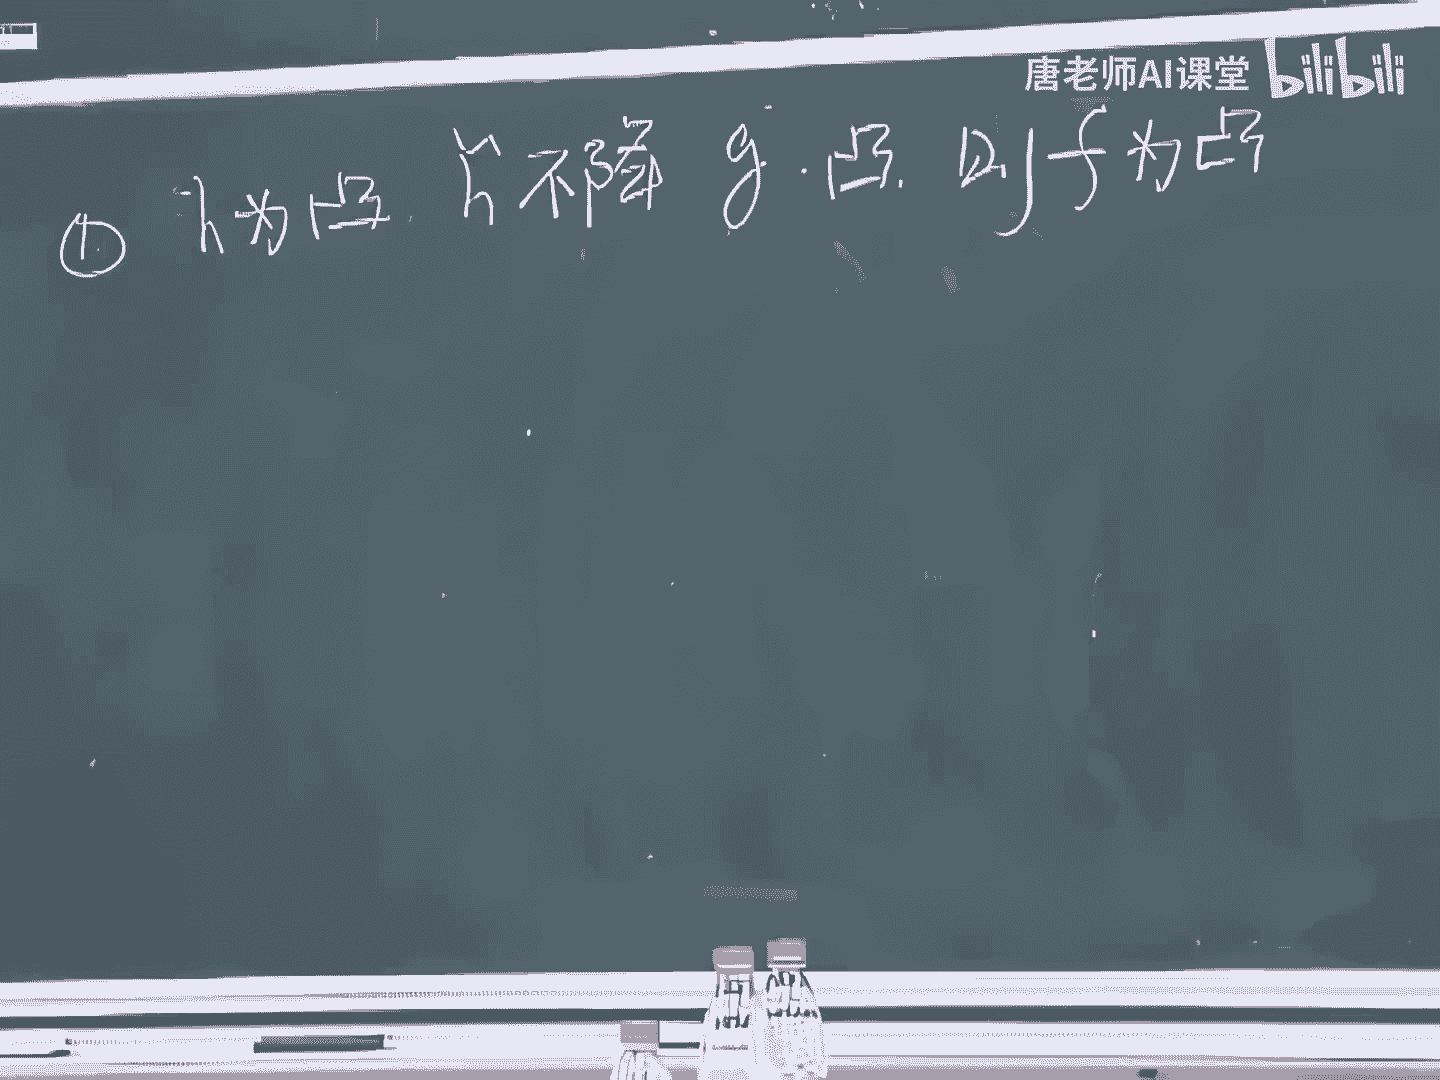 唐老师AI课堂 bilibili
① h为凸. h̃不降 g.凸. 则f为凸